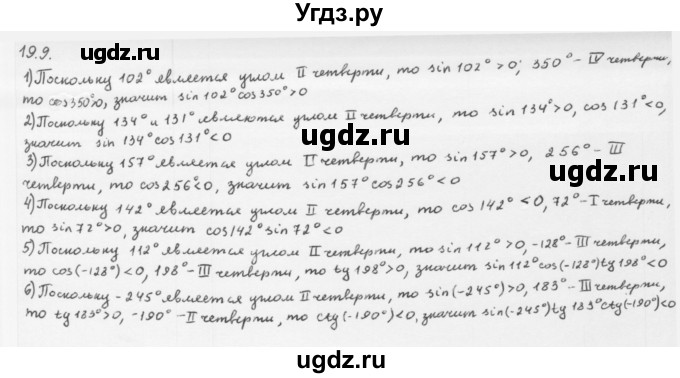 Угдз.ру
19.9.
1) Поскольку 102° является углом II четверти, то sin 102° > 0; 350° - IV четверти,
то cos350°>0, значит sin 102° cos 350° > 0
2) Поскольку 134° и 131° являются углом II четверти, то sin 134° > 0, cos 131° < 0,
значит sin 134° cos 131° < 0
3) Поскольку 157° является углом II четверти, то sin 157° > 0, 256° - III
четверти, то cos 256° < 0, значит sin 157° cos 256° < 0
4) Поскольку 142° является углом II четверти, то cos 142° < 0, 72° - I четверти,
то sin 72° > 0, значит cos 142° sin 72° < 0
5) Поскольку 112° является углом II четверти, то sin 112° > 0, -128° - III четверти,
то cos(-128°) < 0, 198° - III четверти, то tg 198° > 0, значит sin 112° cos(-128°) tg 198° < 0
6) Поскольку -245° является углом II четверти, то sin(-245°) > 0, 183° - III четверти,
то tg 183° > 0, -190° - II четверти, то ctg(-190°) < 0, значит sin(-245°) tg 183° ctg(-190°) < 0
ugdz.ru
ugdz.ru
ugdz.ru
ugdz.ru
ugdz.ru
ugdz.ru